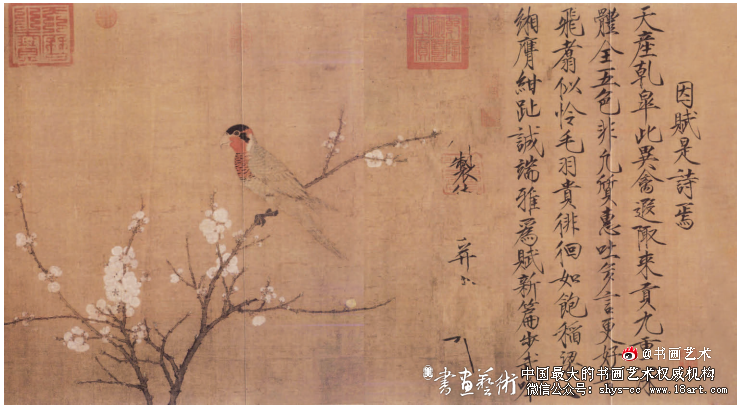 因賦是詩焉
天產乾皋此異禽遐陬來貢九重
體全五色非凡質惠吐多言更好
飛翥似怜毛羽貴徘徊如飽稻
緗膺紺趾誠端雅爲賦新篇步
製
并
@书画艺术
書畫藝術
中国最大的书画艺术权威机构
微信公众号：shys-cc www.18art.com